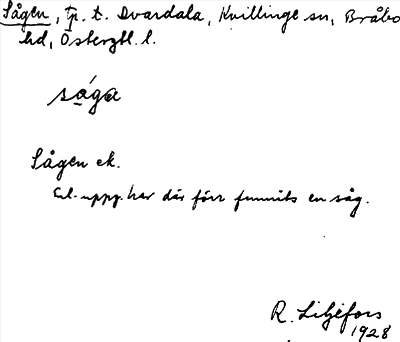 Sågen, tp. t. Dvardala, Kvillinge sn, Bråbo
hd, Östergtl. l.
sága
Sågen ek.
Enl. uppg. har där förr funnits en såg.
R. Liljefors
1928